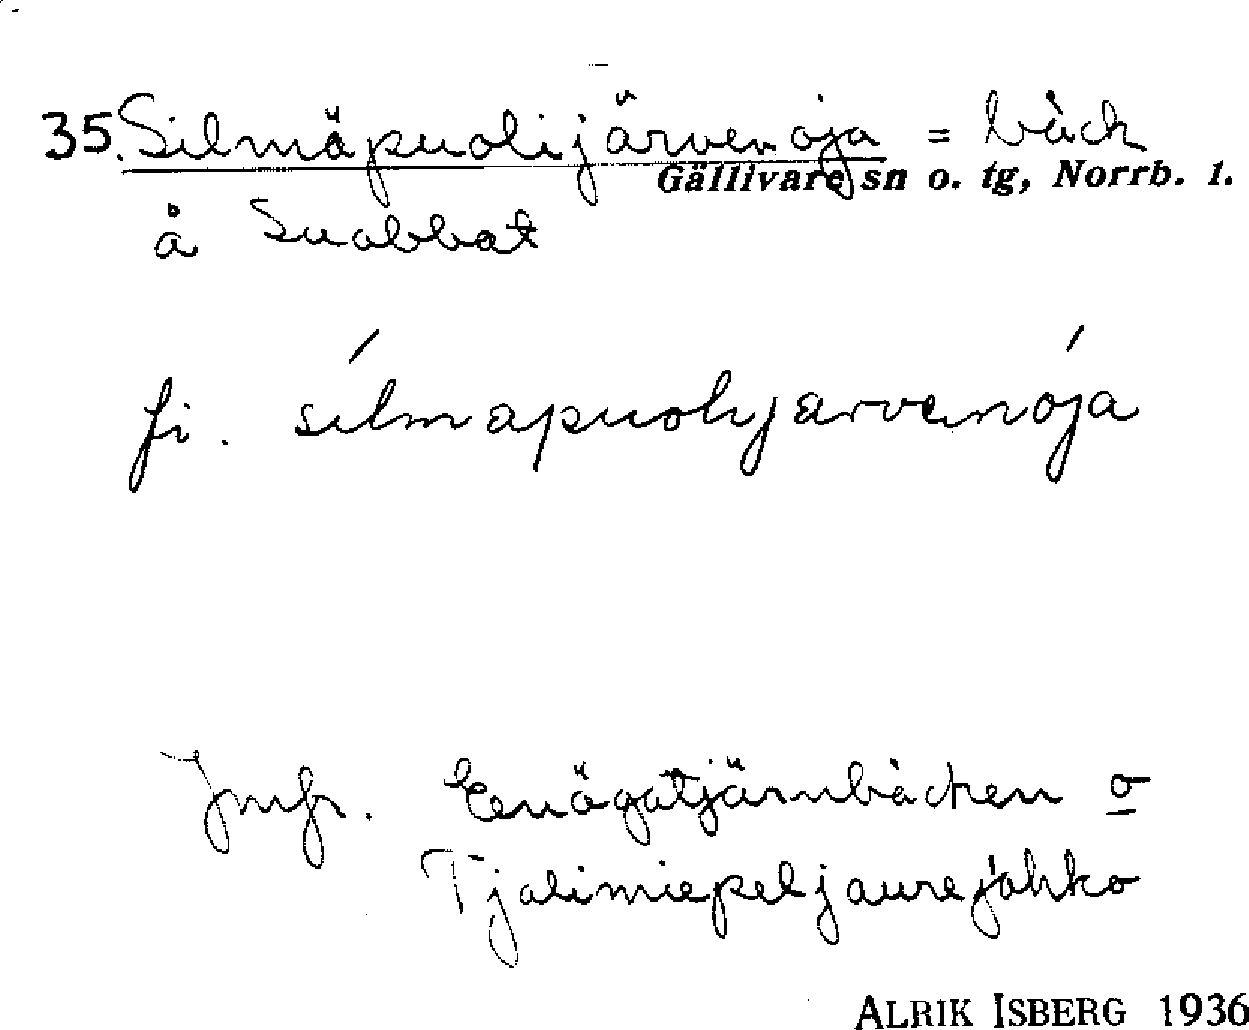 35. Silmäpuolijärvenoja = bäck
Gällivare sn o. tg, Norrb. l.
å Suobbat
fi. sílmapuolijarvenója
Jmfr. Enögatjärnbäcken o
Tjalimiepeljaurejåhko
ALRIK ISBERG 1936